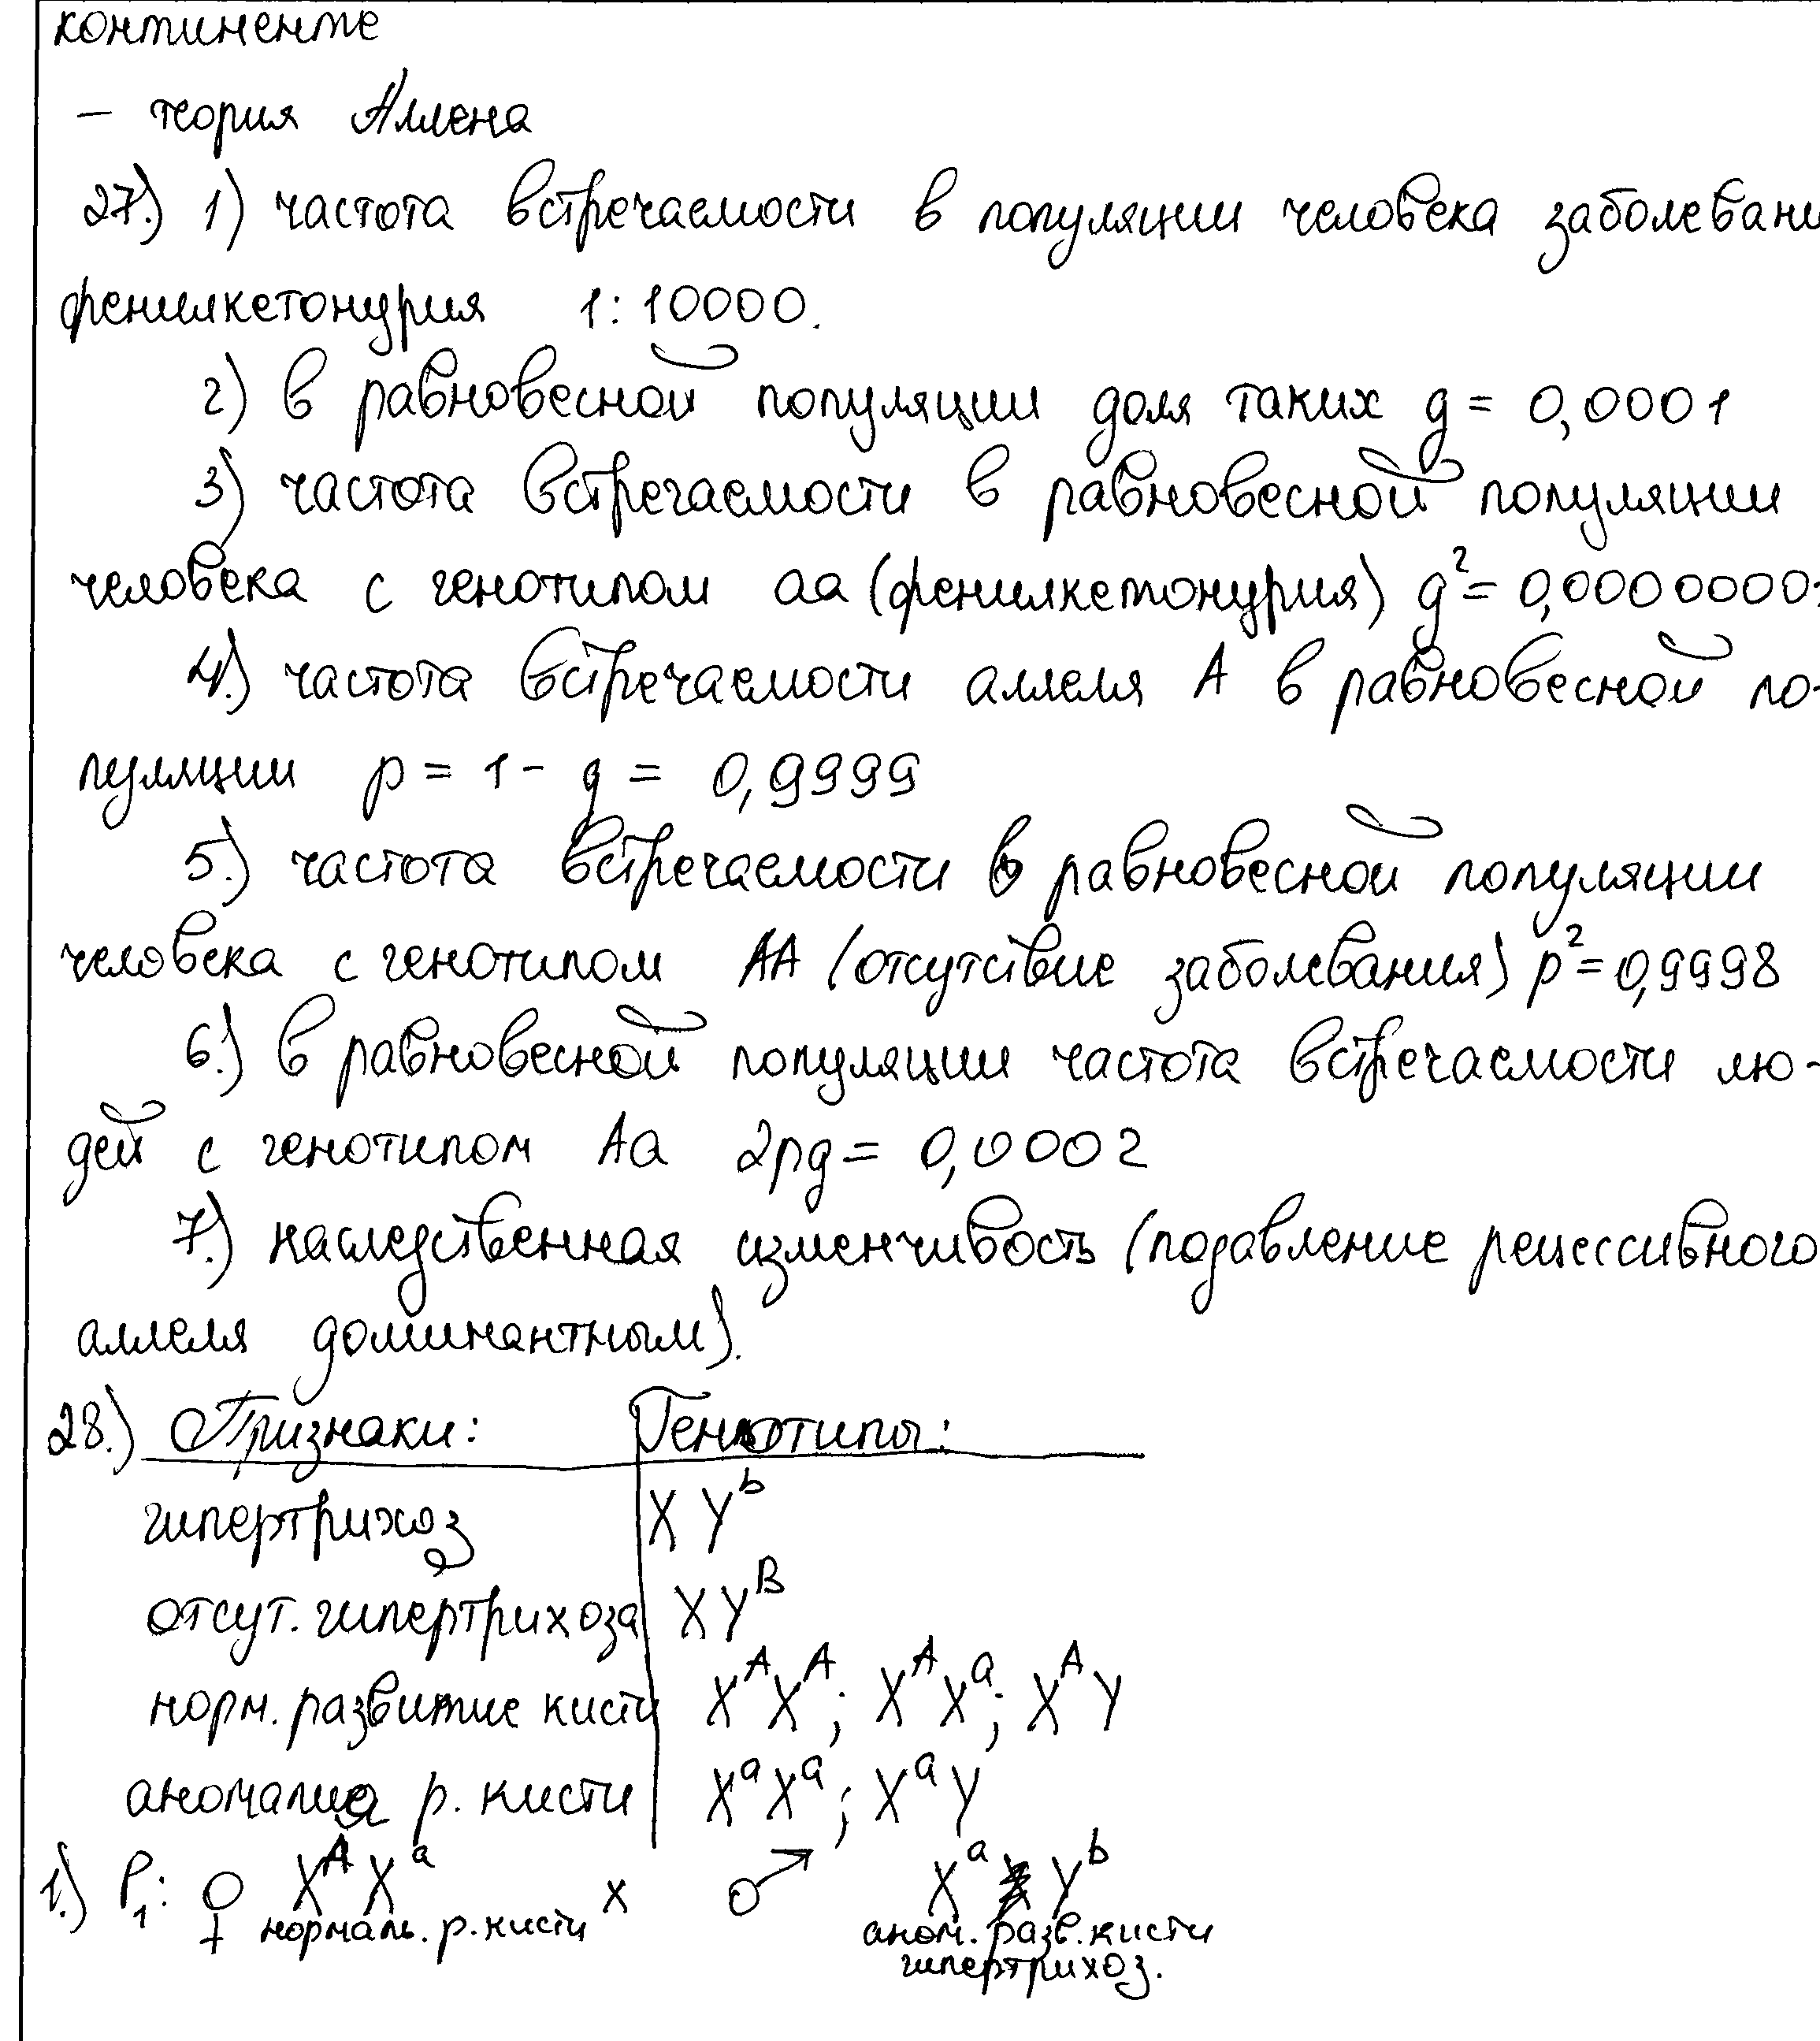 континенте
– теория Аллена
27.) 1) частота встречаемости в популяции человека заболевани
фенилкетонурия 1:10000.
2) в равновесной популяции доля таких q = 0,0001
3) частота встречаемости в равновесной популяции
человека с генотипом аа (фенилкетонурия) q² = 0,00000001
4.) частота встречаемости аллеля А в равновесной по-
пуляции p = 1 - q = 0,9999
5.) частота встречаемости в равновесной популяции
человека с генотипом АА (отсутствие заболевания) p² = 0,9998
6.) в равновесной популяции частота встречаемости лю-
дей с генотипом Аа 2pq = 0,0002
7.) наследственная изменчивость (подавление рецессивного
аллеля доминантным).
28.) Признаки: Генотипы:
гипертрихоз X Yᵇ
отсут. гипертрихоза X Yᴮ
норм. развитие кисти XᴬXᴬ; XᴬXᵃ; XᴬY
аномалия р. кисти XᵃXᵃ; XᵃY
1.) P₁: ♀ XᴬXᵃ x ♂ Xᵃ Yᵇ
нормаль. р. кисти аном. разв. кисти
гипертрихоз.